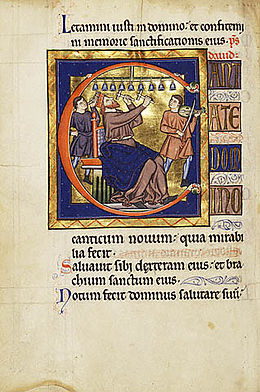 Letamini iusti in domino: et confitemi
ni memorie sanctificationis eius. ps
dauid.
C ANT
ATE
DOM
INO
canticum nouum: quia mirabi
lia fecit.
Saluauit sibi dexteram eius: et bra
chium sanctum eius.
Notum fecit dominus salutare suu